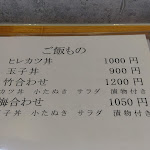 ご飯もの
ヒレカツ丼 1000円
玉子丼 900円
竹合わせ 1200円
カツ丼 小たぬき サラダ 漬物付き
梅合わせ 1050円
玉子丼 小たぬき サラダ 漬物付き